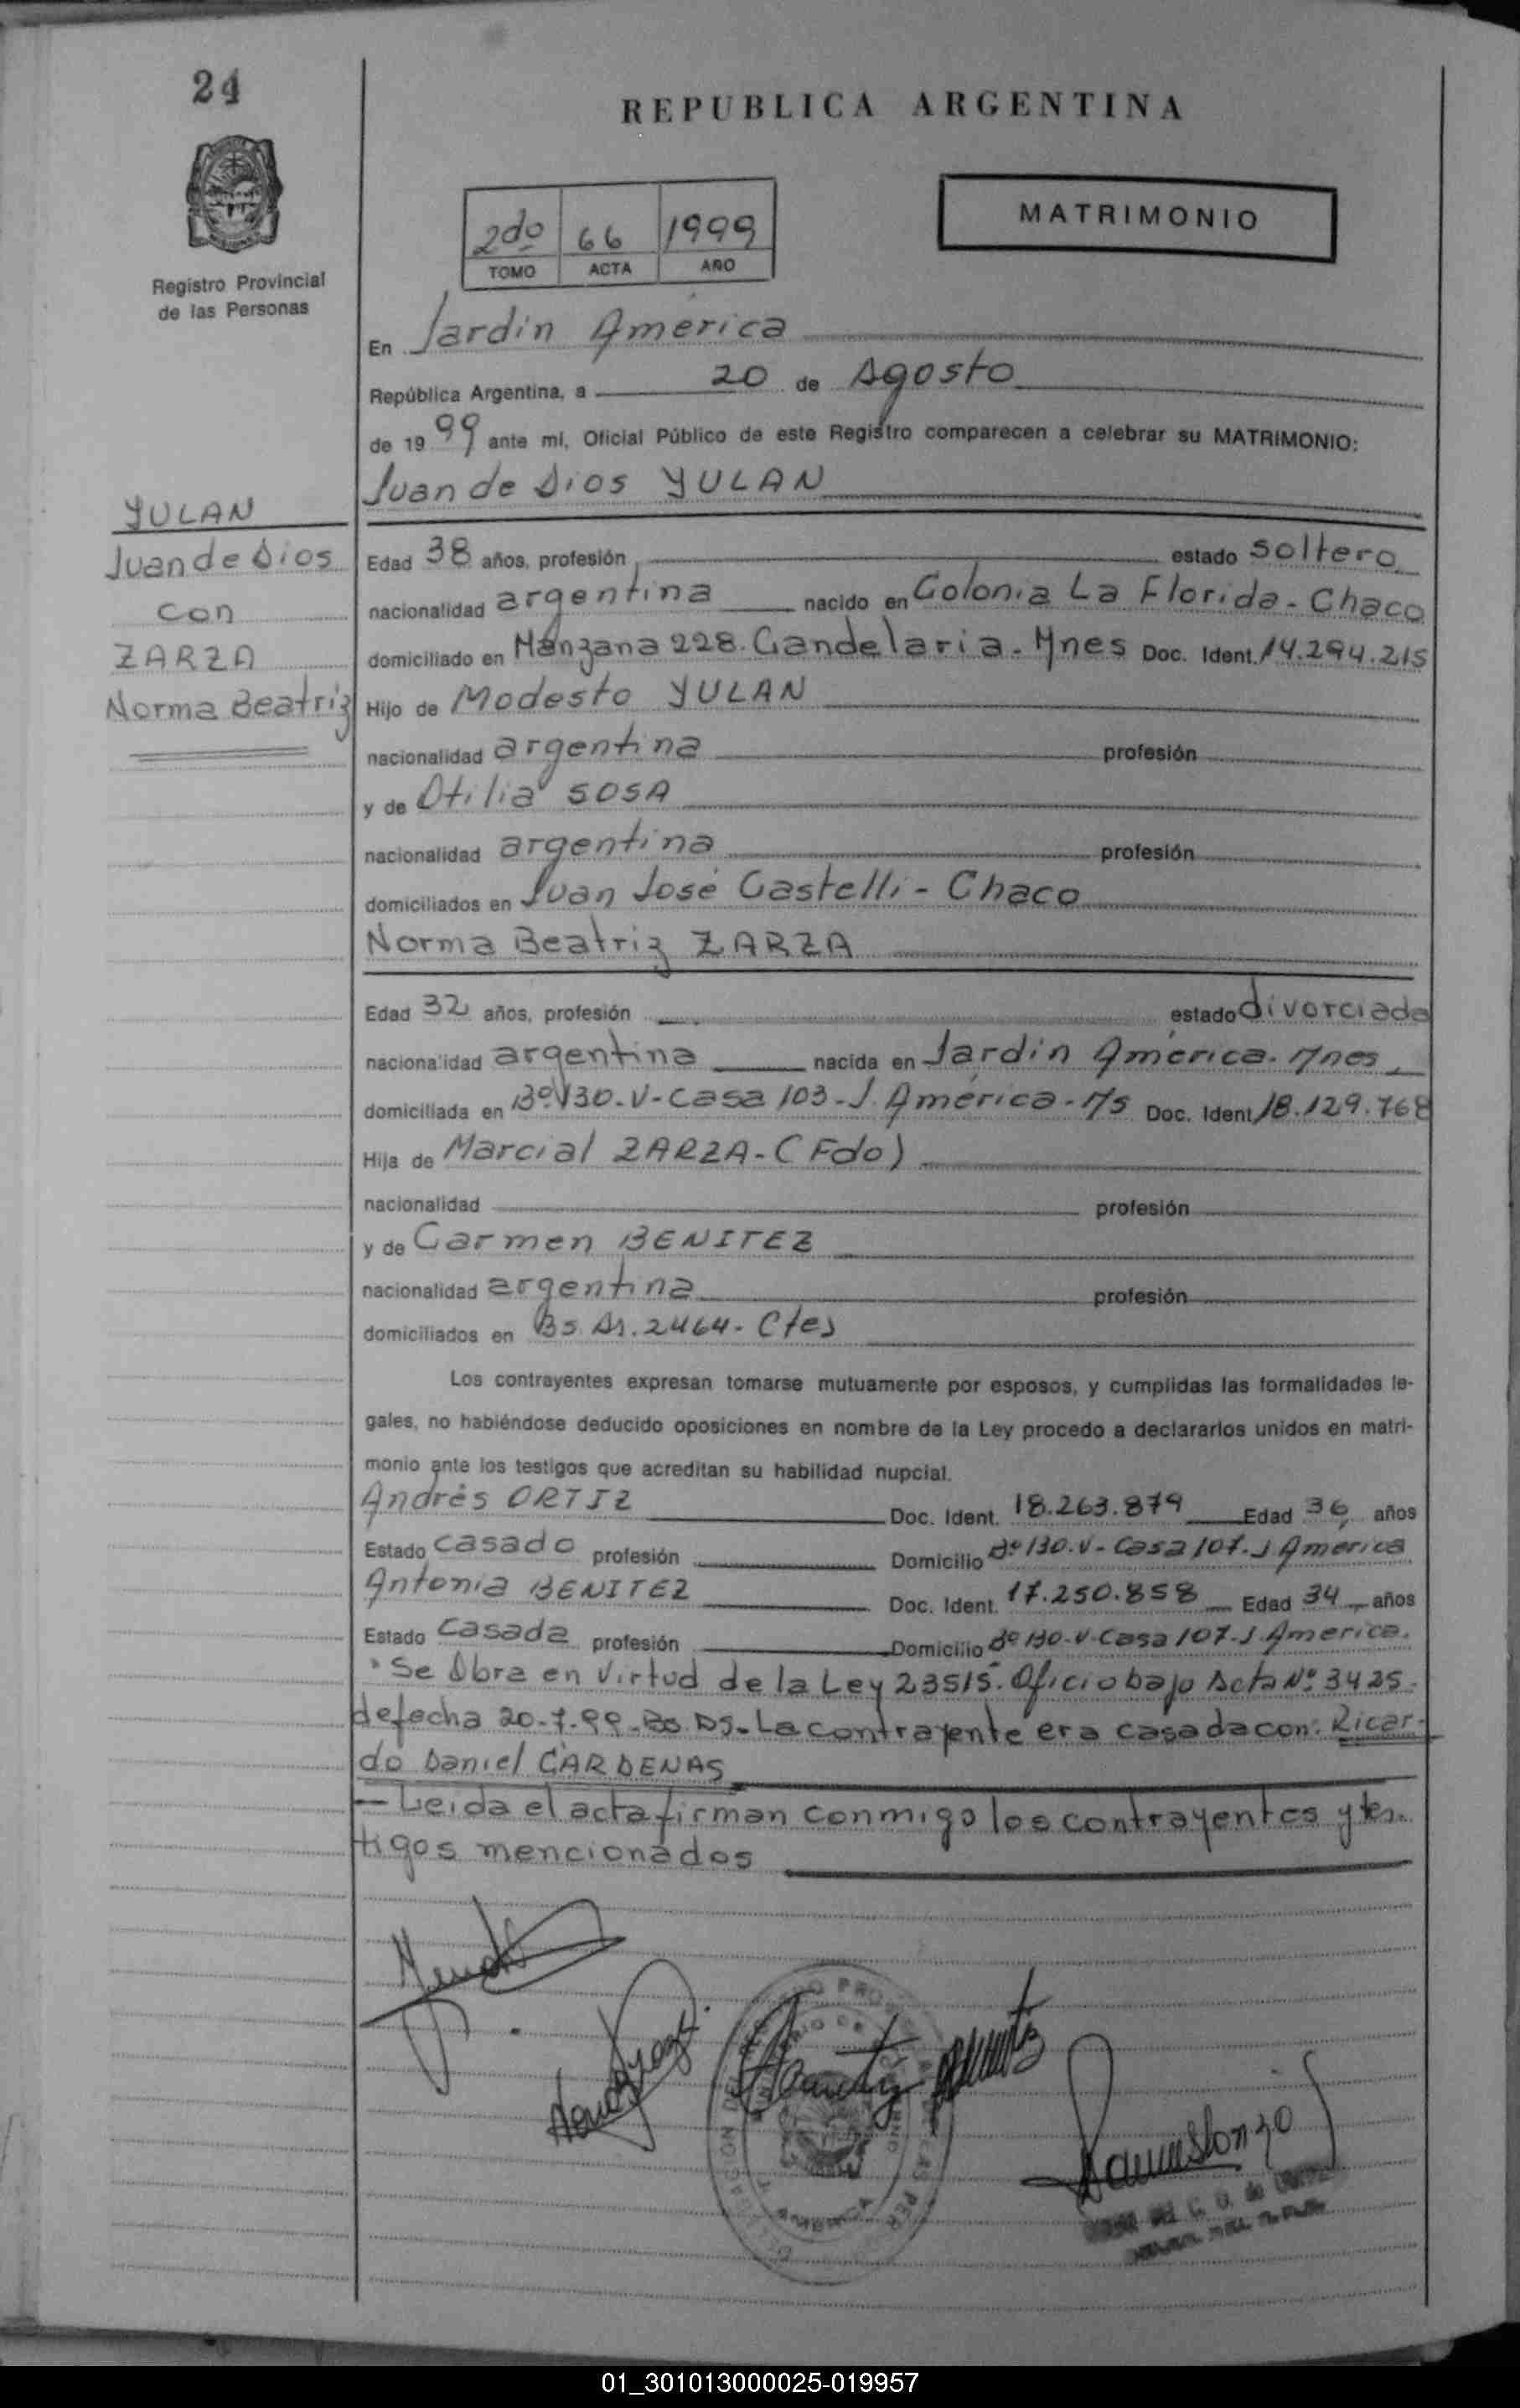 24
REPUBLICA ARGENTINA
MATRIMONIO
2do 66 1999
TOMO ACTA AÑO
Registro Provincial
de las Personas
En Jardín América
República Argentina, a 20 de Agosto
de 19 99 ante mí, Oficial Público de este Registro comparecen a celebrar su MATRIMONIO:
Juan de Dios YULAN
YULAN
Juan de Dios
con
ZARZA
Norma Beatriz
Edad 38 años, profesión estado soltero
nacionalidad argentina nacido en Colonia La Florida - Chaco
domiciliado en Manzana 228. Candelaria - Mnes Doc. Ident. 14.294.215
Hijo de Modesto YULAN
nacionalidad argentina profesión
y de Otilia SOSA
nacionalidad argentina profesión
domiciliados en Juan José Castelli - Chaco
Norma Beatriz ZARZA
Edad 32 años, profesión estado divorciada
nacionalidad argentina nacida en Jardín América. Mnes
domiciliada en Bº 130-V-Casa 103-J. América-M/s Doc. Ident. 18.129.768
Hija de Marcial ZARZA-(Fdo)
nacionalidad profesión
y de Carmen BENITEZ
nacionalidad argentina profesión
domiciliados en Bs As. 2464- Ctes
Los contrayentes expresan tomarse mutuamente por esposos, y cumplidas las formalidades le-
gales, no habiéndose deducido oposiciones en nombre de la Ley procedo a declararlos unidos en matri-
monio ante los testigos que acreditan su habilidad nupcial.
Andrés ORTIZ Doc. Ident. 18.263.879 Edad 36 años
Estado Casado profesión Domicilio Bº 130.V-Casa 107-J América
Antonia BENITEZ Doc. Ident. 17.250.858 Edad 34 años
Estado Casada profesión Domicilio Bº 130-V-Casa 107-J. América.
Se Obra en virtud de la Ley 23515. Oficio bajo Acta Nº 3425.
de fecha 20-7-99-Bs As-La contrayente era casada con: Ricar-
do Daniel CARDENAS
- Leida el acta firman conmigo los contrayentes y tes-
tigos mencionados
01_301013000025-019957